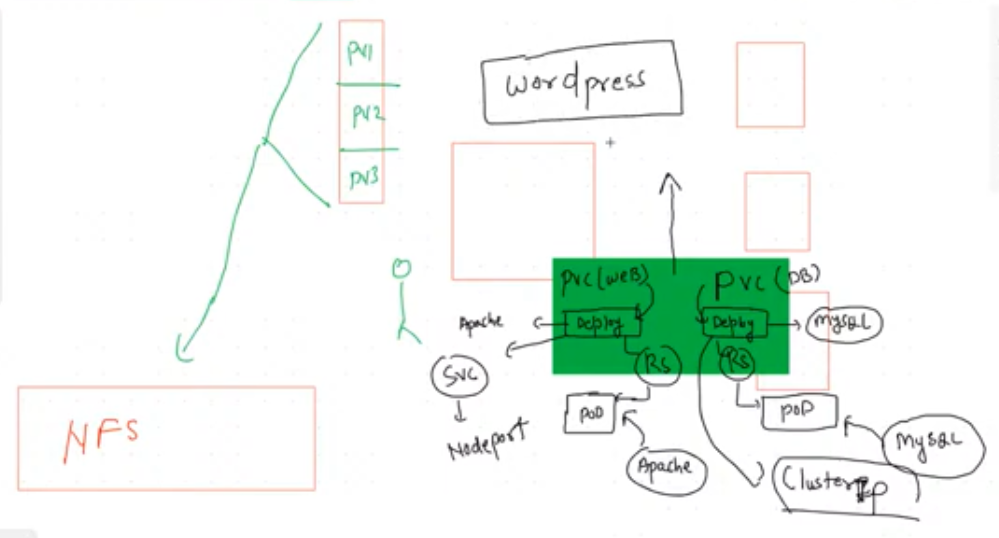 PV1
PV2
PV3
Wordpress
PVC (WEB)
PVC (DB)
Apache
Deploy
Deploy
MySQL
SVC
RS
RS
Nodeport
POD
POD
Apache
MySQL
Cluster IP
NFS